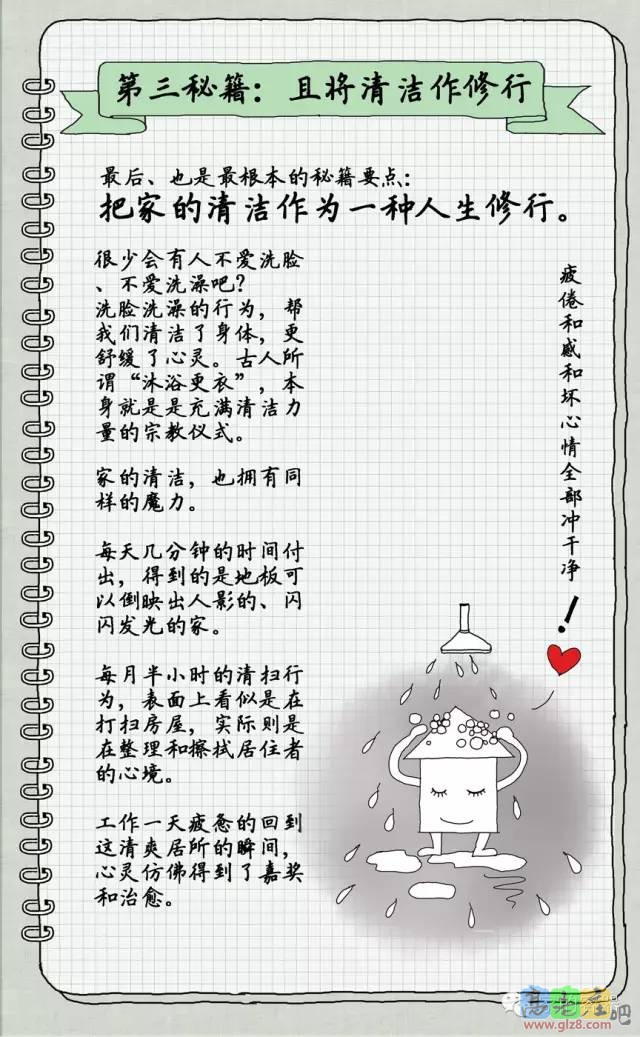 第三秘籍：且将清洁作修行
最后、也是最根本的秘籍要点：
把家的清洁作为一种人生修行。
很少会有人不爱洗脸
、不爱洗澡吧？
洗脸洗澡的行为，帮
我们清洁了身体，更
舒缓了心灵。古人所
谓“沐浴更衣”，本
身就是是充满清洁力
量的宗教仪式。
家的清洁，也拥有同
样的魔力。
每天几分钟的时间付
出，得到的是地板可
以倒映出人影的、闪
闪发光的家。
每月半小时的清扫行
为，表面上看似是在
打扫房屋，实际则是
在整理和擦拭居住者
的心境。
工作一天疲惫的回到
这清爽居所的瞬间，
心灵仿佛得到了嘉奖
和治愈。
疲倦和感和坏心情全部冲干净！
高老庄吧
www.glz8.com